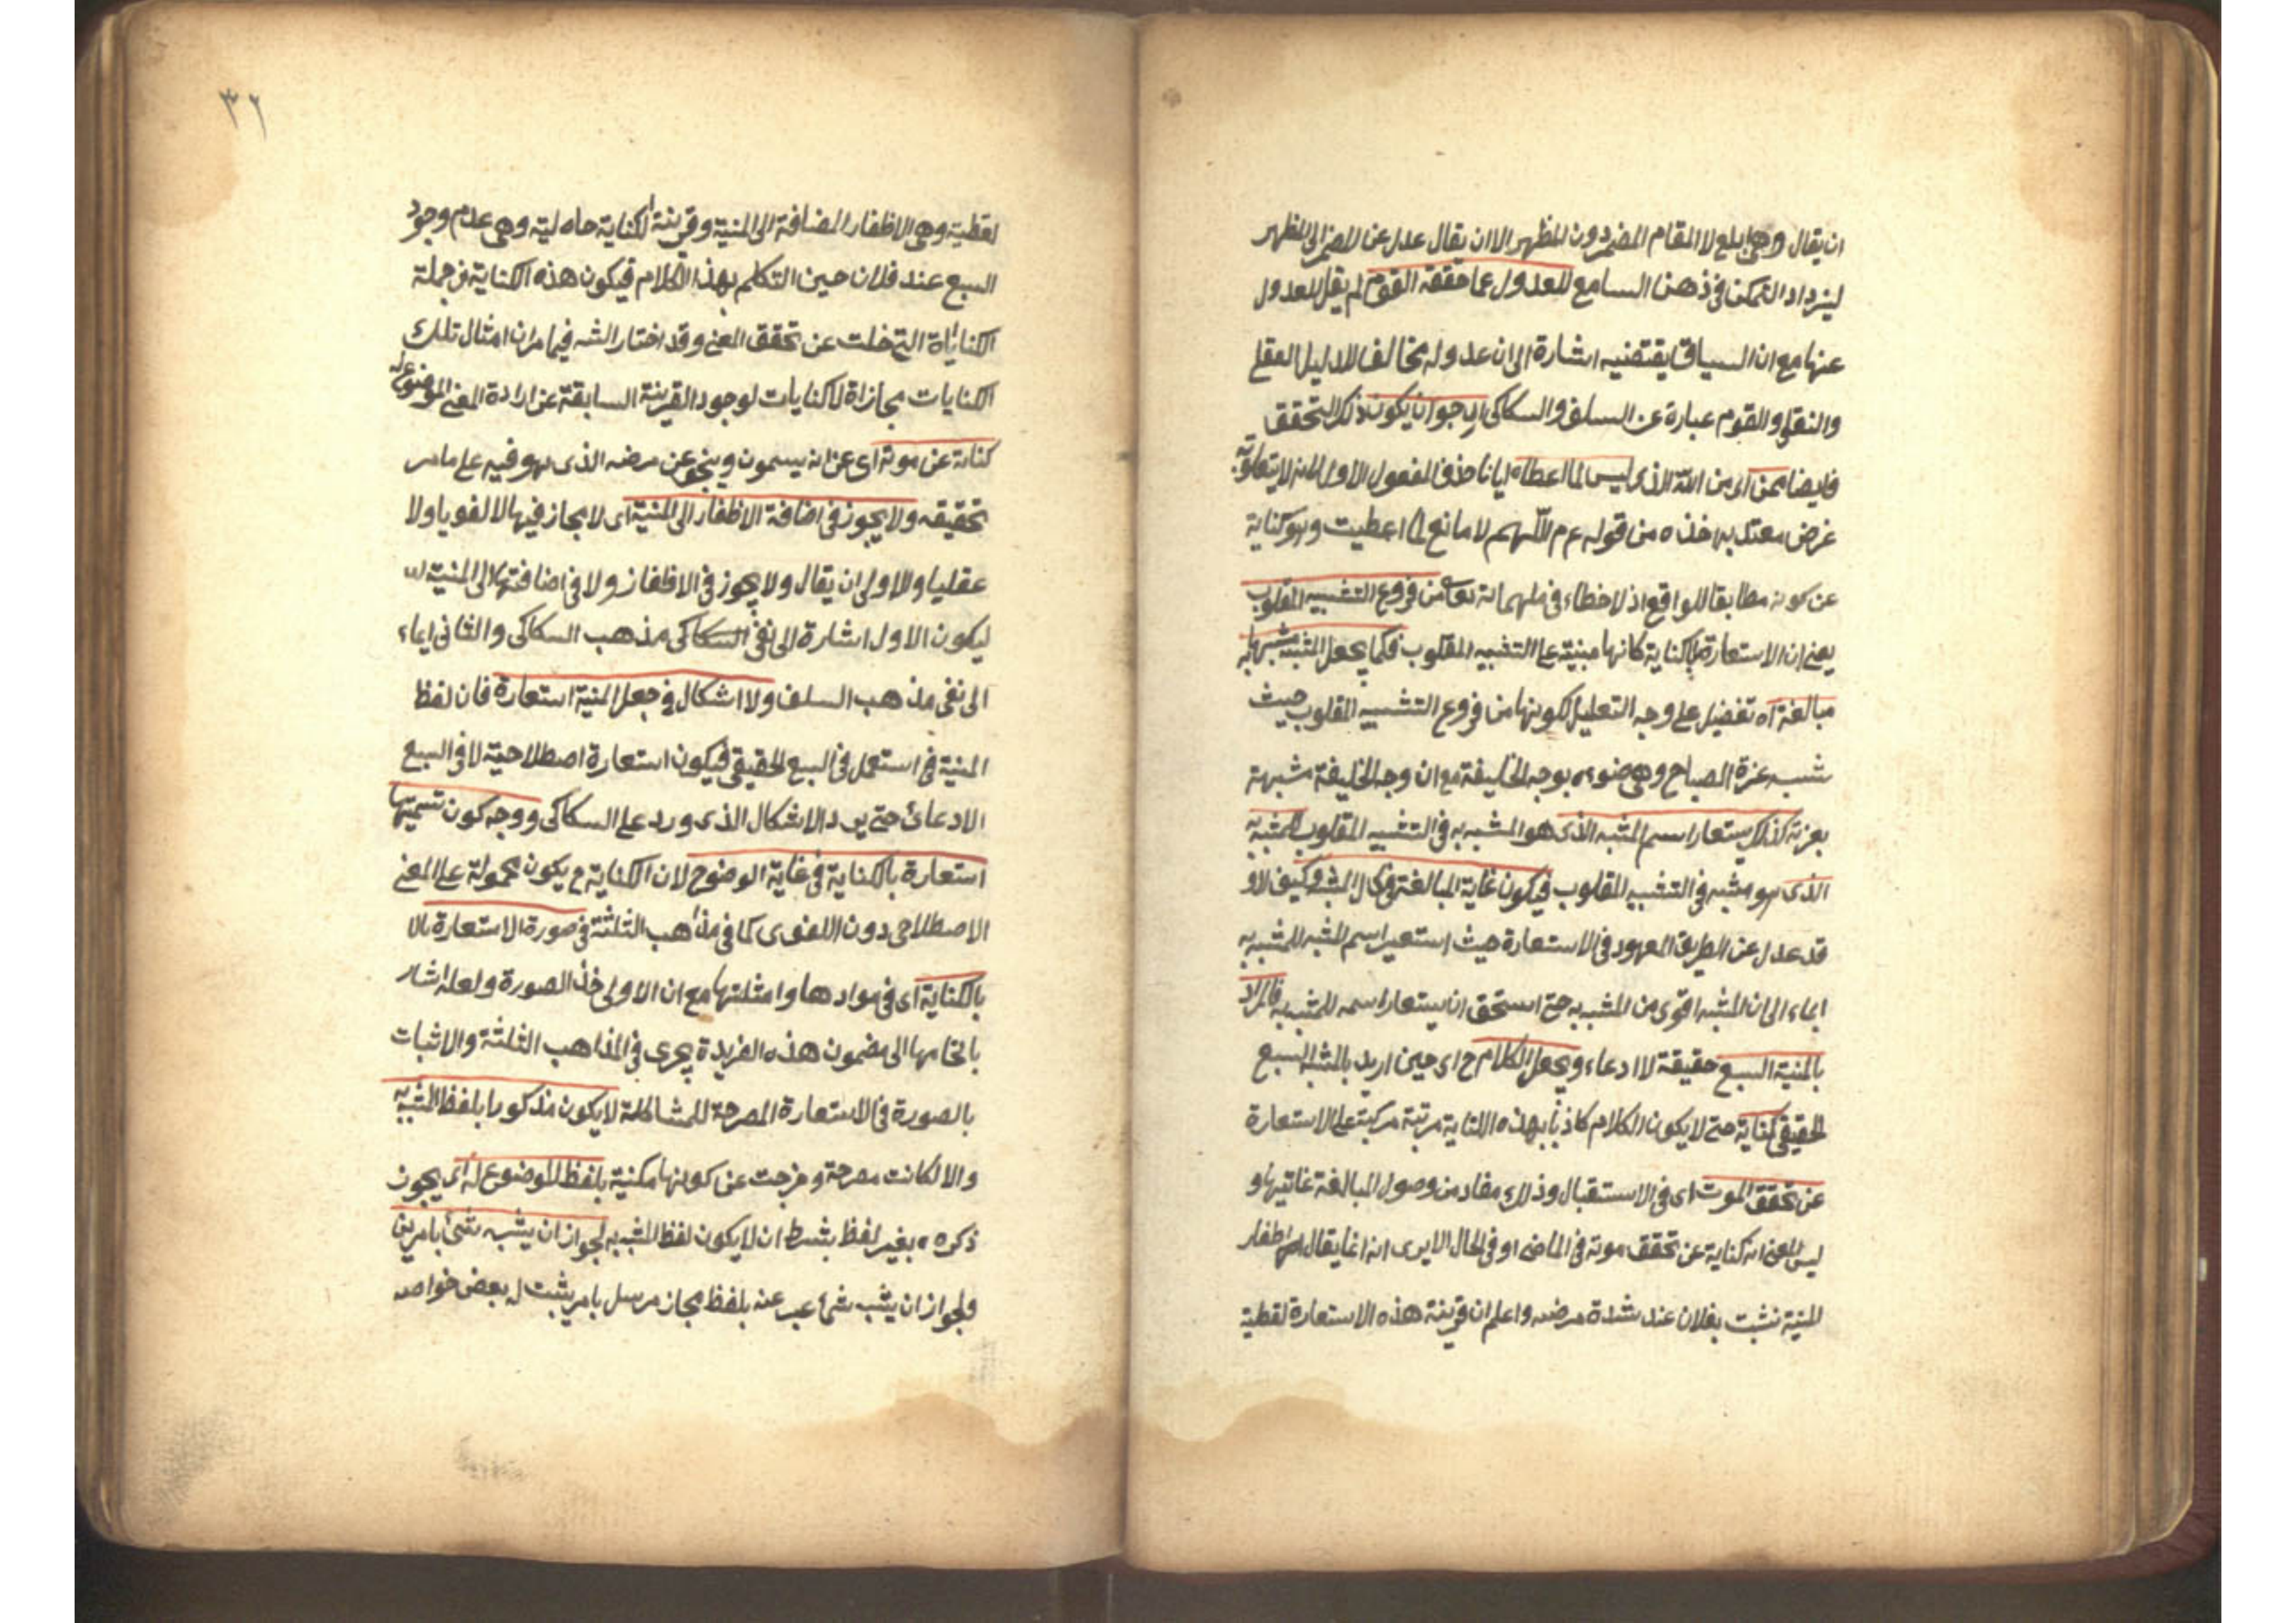 ان يقال وهى ابلغ لا المقام المضمر دون المظهر الا ان يقال عدل عن المضمر الى المظهر
ليزداد التمكن فى ذهن السامع للعدول عما حققه القوم لم يقل للعدول
عنها مع ان السياق يقتضيه اشارة الى ان عدوله مخالف للدليل العقلى
والنقلى والقوم عبارة عن السلف والسكاكى يكون ذلك التحقق
فايضا ممن اى من الله الذى ليس لما اعطاه ايانا حذف المفعول الاول لانه لا يتعلق به
غرض معتد به اخذه من قوله عم اللهم لا مانع لما اعطيت وهو كناية
عن كونه مطابقا للواقع اذ لا خطاء فى ملهماته تعالى من فروع التشبيه المقلوب
يعنى ان الاستعارة بالكناية كانها مبنية على التشبيه المقلوب فكما يجعل المشبه مشبها به
مبالغة اه تفضيل على وجه التعليل لكونها من فروع التشبيه المقلوب حيث
شبه غرة الصباح وهى ضوءه بوجه الخليفة مع ان وجه الخليفة مشبهة
بغرته كذلك يستعار اسم المشبه الذى هو المشبه به فى التشبيه المقلوب للمشبه به
الذى هو مشبه فى التشبيه المقلوب فيكون غاية المبالغة فى كمال المشبه وكيف لا و
قد عدل عن الطريق المعهود فى الاستعارة حيث استعير اسم المشبه للمشبه به
ايماء الى ان المشبه اقوى من المشبه به حتى استحق ان يستعار اسمه للمشبه به فالمراد
بالمنية السبع حقيقة لا ادعاء ويجعل الكلام ح اى حين اريد بالمشبه السبع
الحقيقى كناية حتى لا يكون الكلام كاذبا بهذه الكناية مرتبة مركبة على الاستعارة
عن تحقق الموت اى فى الاستقبال وذلك مفاد من وصول المبالغة غايتها و
ليس المعنى انه كناية عن تحقق موته فى الماضى او فى الحال الا يرى انه انما يقال اظفار
المنية نشبت بفلان عند شدة مرضه واعلم ان قرينة هذه الاستعارة لفظية
٣٢
لفظية وهى الاظفار المضافة الى المنية وقرينة الكناية حاه لية وهى عدم وجود
السبع عند فلان حين التكلم بهذا الكلام فيكون هذه الكناية من جملة
الكناياة التى خلت عن تحقق المعنى وقد اختار الشه فيما مر ان امثال تلك
الكنايات مجازاة لا كنايات لوجود القرينة السابقة عن ارادة المعنى الموضوع له
كناية عن موته اى عن انه سيموت عن مرضه الذى هو فيه على ما مر
تحقيقه ولا يجوز فى اضافة الاظفار الى المنية اى لا مجاز فيها لا لغويا ولا
عقليا والاولى ان يقال ولا يجوز فى الاظفار ولا فى اضافتها الى المنية
ليكون الاول اشارة الى نفى السكاكى مذهب السكاكى والثانى ايماء
الى نفى مذهب السلف ولا اشكال فى جعل المنية استعارة فان لفظ
المنية فى استعمل فى السبع الحقيقى فيكون استعارة اصطلاحية لا فى السبع
الادعائى حتى يرد الاشكال الذى ورد على السكاكى ووجه كون تسميتها
استعارة بالكناية فى غاية الوضوح لان الكناية ح يكون محمولة على المعنى
الاصطلاحى دون اللغوى كما فى مذاهب الثلثة فى صورة الاستعارة بالا
بالكناية اى فى موادها وامثلتها مع ان الاولى حذف الصورة ولعله اشار
بالخامها الى مضمون هذه الفريدة يجرى فى المذاهب الثلثة والاثبات
بالصورة فى الاستعارة المصرحة للمشاكلة لا يكون مذكورا بلفظ المشبه به
والا لكانت مصرحة وخرجت عن كونها مكنية بلفظ الموضوع له اى يجوز
ذكره بغير لفظ بشرط ان لا يكون لفظ المشبه به لجواز ان يشبه شئ بامرين
ولجواز ان يشبه شئ عبر عنه بلفظ مجاز مرسل بامر يثبت له بعض خواصه